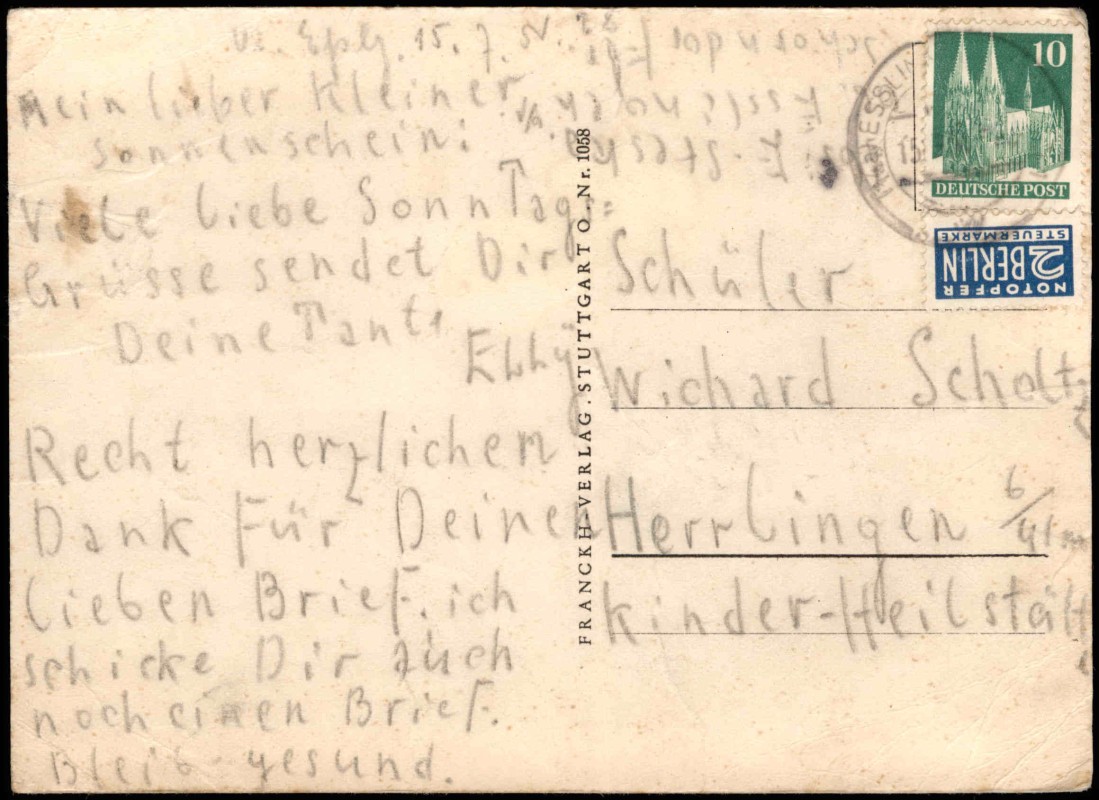 Eßlg. 15. 7.
Mein lieber Kleiner
Sonnenschein!
Viele liebe Sonntags=
Grüsse sendet Dir
Deine Tante
Elly
Recht herzlichen
Dank Für Deinen
lieben Brief. ich
schicke Dir auch
noch einen Brief.
Bleib gesund.
FRANCKH-VERLAG . STUTTGART O Nr. 1058
Eßlingen
10
DEUTSCHE POST
NOTOPFER
2 BERLIN
STEUERMARKE
ESSLIN
15
Schüler
Wichard Scholtz
Herrlingen b/Ulm
Kinder-Heilstätte